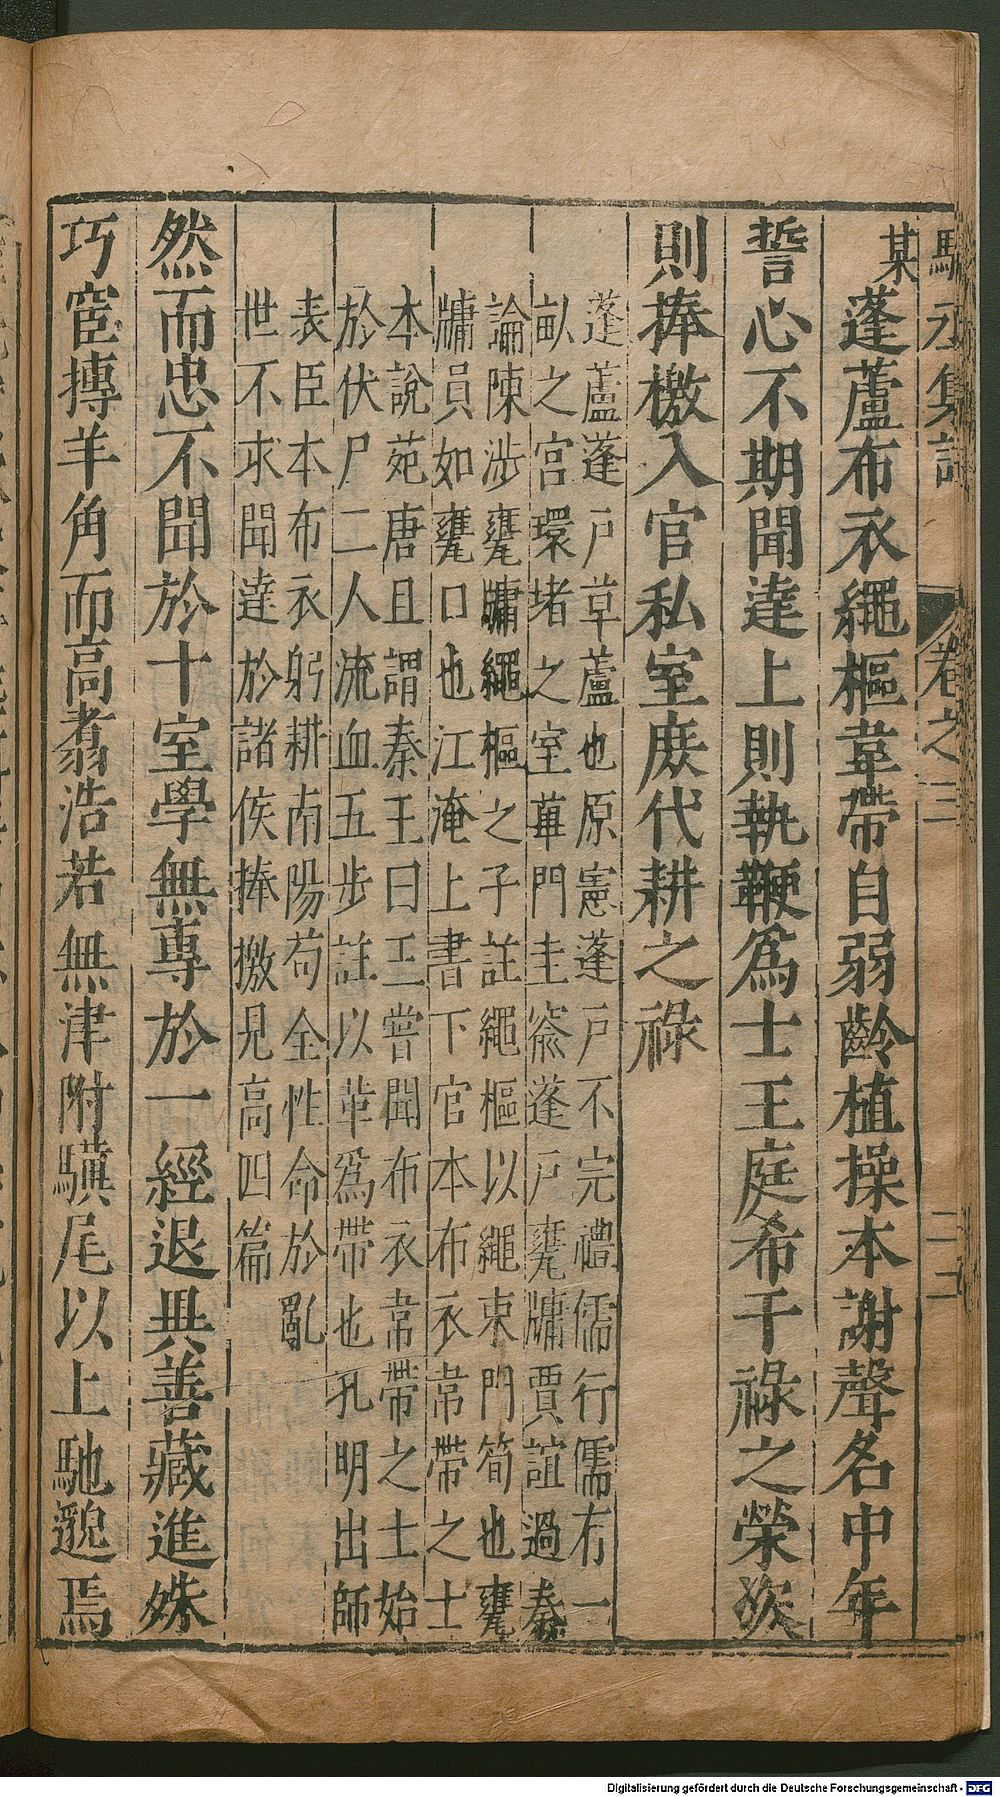 駱丞集註 卷之三 二二
某蓬蘆布衣繩樞韋帶自弱齡植操本謝聲名中年
誓心不期聞達上則執鞭爲士王庭希干祿之榮次
則捧檄入官私室庶代耕之祿
蓬蘆蓬戶草蘆也原憲蓬戶不完禮儒行儒有一
畝之宫環堵之室蓽門圭窬蓬戶甕牖賈誼過秦
論陳涉甕牖繩樞之子註繩樞以繩束門筍也甕
牖員如甕口也江淹上書下官本布衣韋帶之士
本說苑唐且謂秦王曰王嘗聞布衣韋帶之士始
於伏尸二人流血五步註以葦爲帶也孔明出師
表臣本布衣躬耕南陽苟全性命於亂
世不求聞達於諸侯捧檄見高四篇
然而忠不聞於十室學無專於一經退異善藏進殊
巧宦摶羊角而高翥浩若無津附驥尾以上馳邈焉
Digitalisierung gefördert durch die Deutsche Forschungsgemeinschaft - DFG